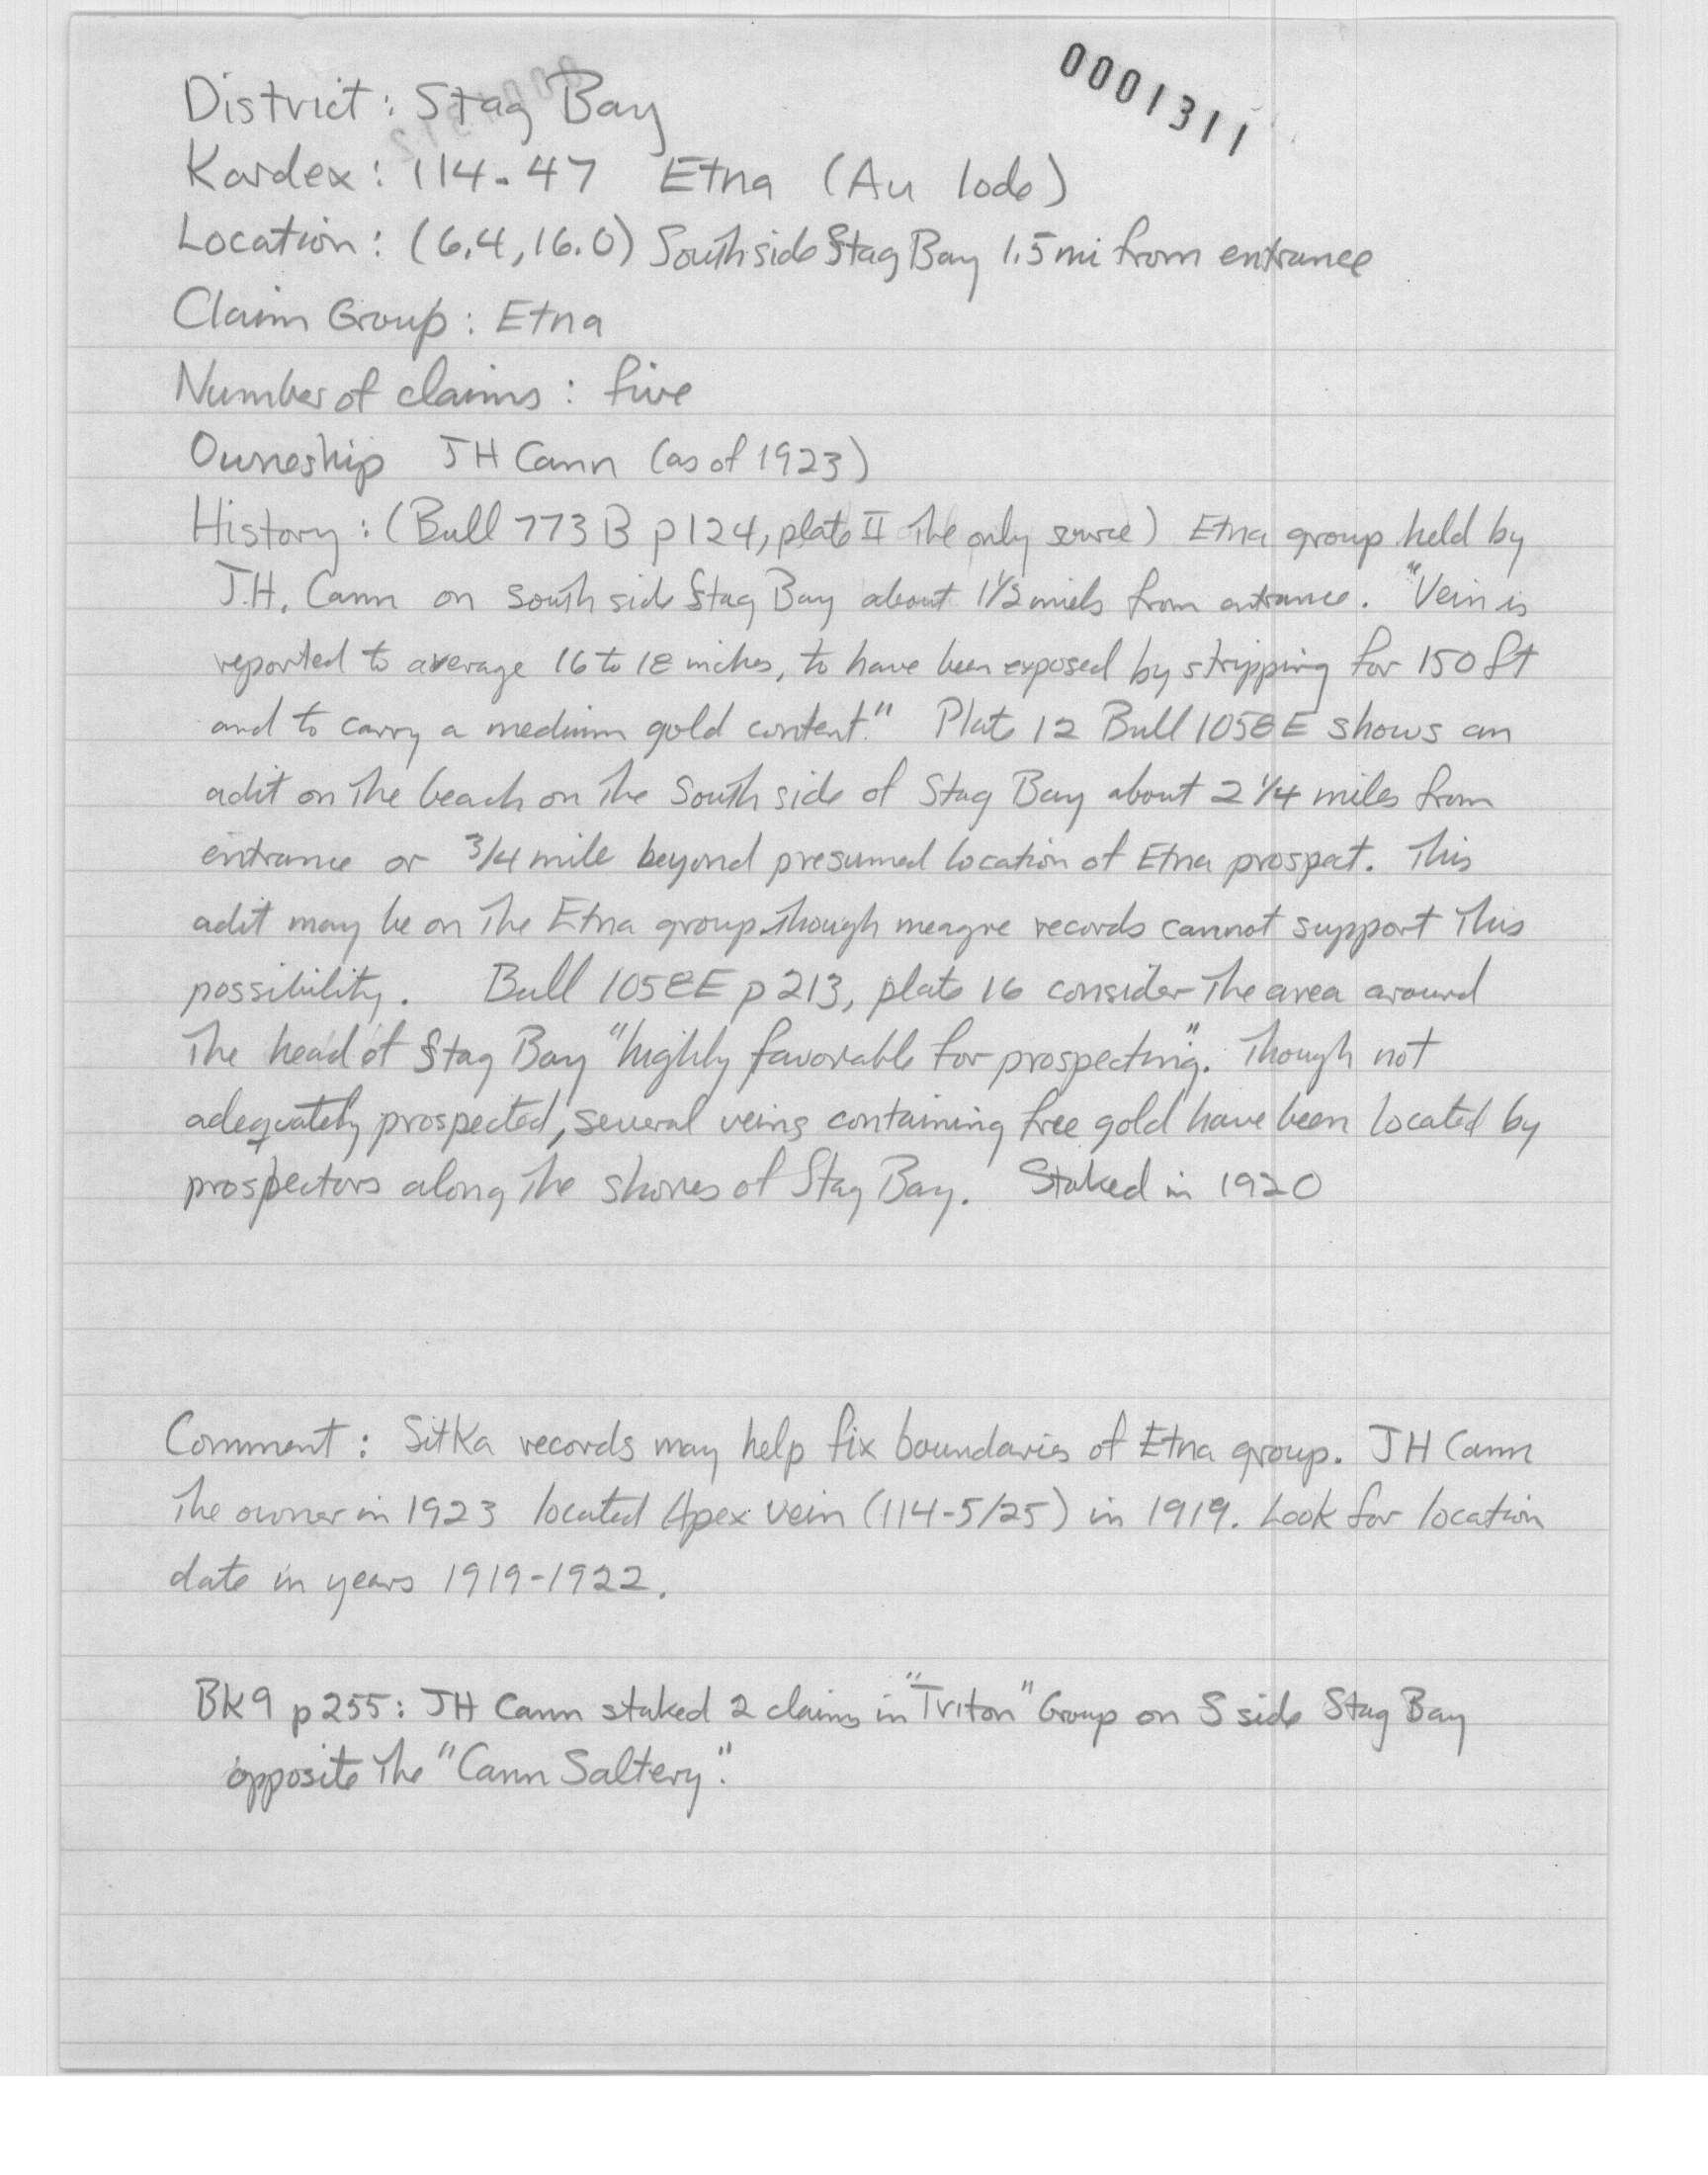 0001311
District: Stag Bay
Kardex: 114-47 Etna (Au lode)
Location: (6.4, 16.0) South side Stag Bay 1.5 mi from entrance
Claim Group: Etna
Number of claims: five
Owneship JH Cann (as of 1923)
History: (Bull 773 B p 124, plate II The only source) Etna group held by
J.H. Cann on south side Stag Bay about 1 1/2 miels from entrance. "Vein is
reported to average 16 to 18 inches, to have been exposed by stripping for 150 ft
and to carry a medium gold content." Plate 12 Bull 1058E shows an
adit on the beach on the South side of Stag Bay about 2 1/4 miles from
entrance or 3/4 mile beyond presumed location of Etna prospect. This
adit may be on the Etna group though meagre records cannot support this
possibility. Bull 1058E p 213, plate 16 consider the area around
the head of Stag Bay "highly favorable for prospecting". Though not
adequately prospected, several veins containing free gold have been located by
prospectors along the shores of Stag Bay. Staked in 1920
Comment: Sitka records may help fix boundaries of Etna group. JH Cann
the owner in 1923 located Apex vein (114-5/25) in 1919. Look for location
date in years 1919-1922.
BK9 p 255: JH Cann staked 2 claims in "Triton" Group on S side Stag Bay
opposite the "Cann Saltery".